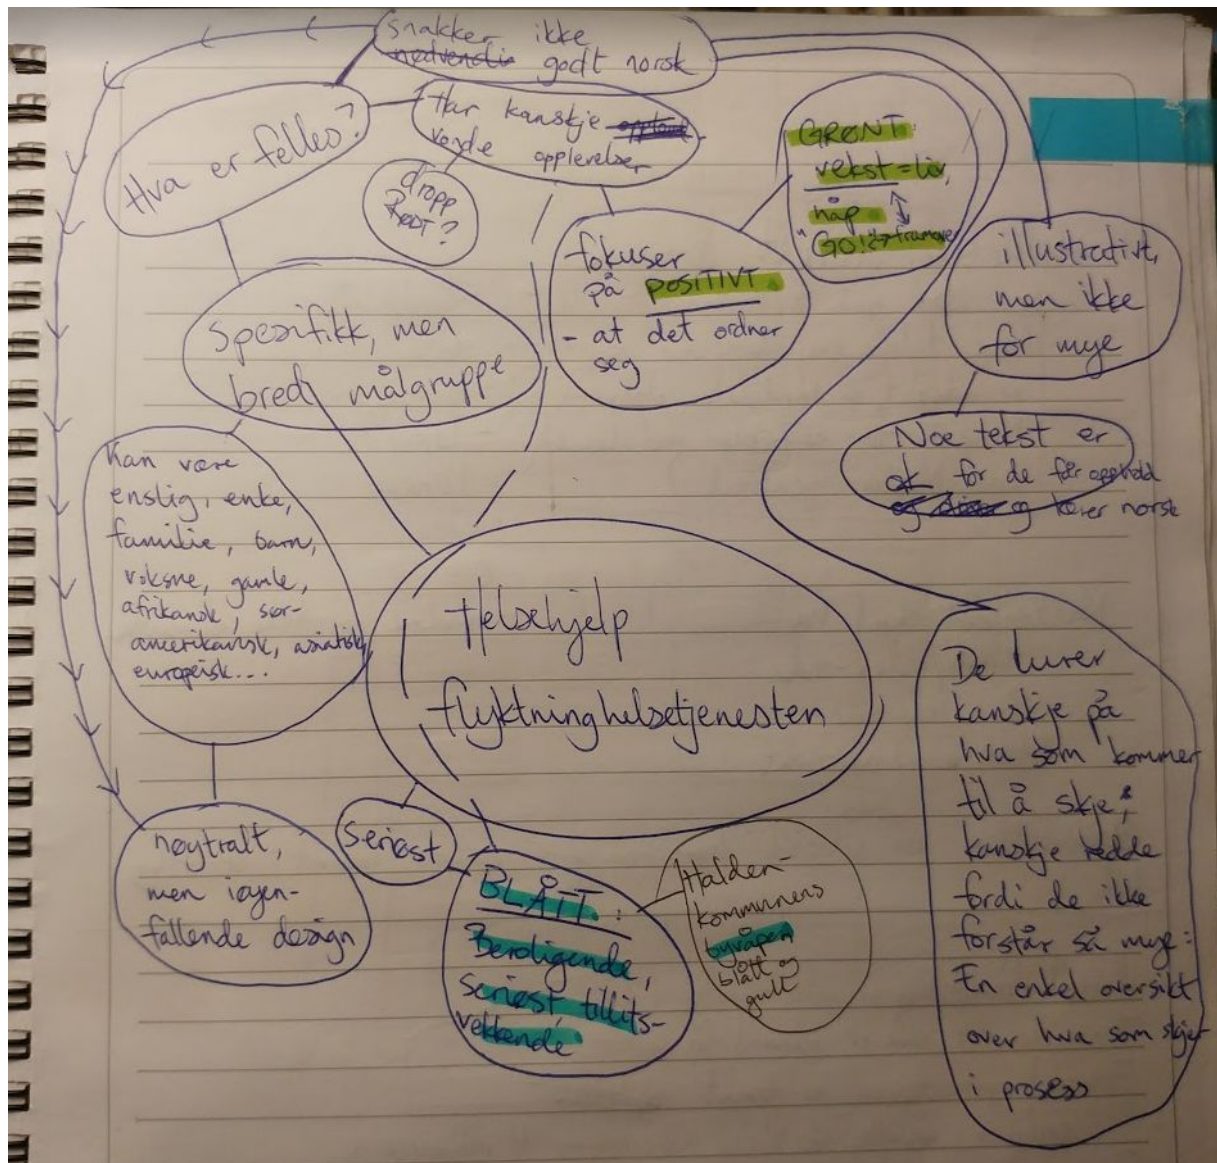 snakker ikke
godt norsk
Hva er felles?
Har kanskje
vonde opplevelser
dropp
RØDT?
GRØNT:
vekst = liv,
håp
"GO!" → framover
fokuser
på POSITIVT
- at det ordner
seg
illustrativt,
men ikke
for mye
Spesifikk, men
bred målgruppe
Noe tekst er
ok for de får opphold
og lærer norsk
Kan være
enslig, enke,
familie, barn,
voksne, gamle,
afrikansk, sør-
amerikansk, asiatisk,
europeisk...
Helsehjelp
flyktninghelsetjenesten
De lurer
kanskje på
hva som kommer
til å skje,
kanskje redde
fordi de ikke
forstår så mye:
En enkel oversikt
over hva som skjer
i prosess
nøytralt,
men iøyen-
fallende design
seriøst
BLÅTT:
Beroligende,
seriøst, tillits-
vekkende
Halden-
kommunens
byvåpen
blått og
gult